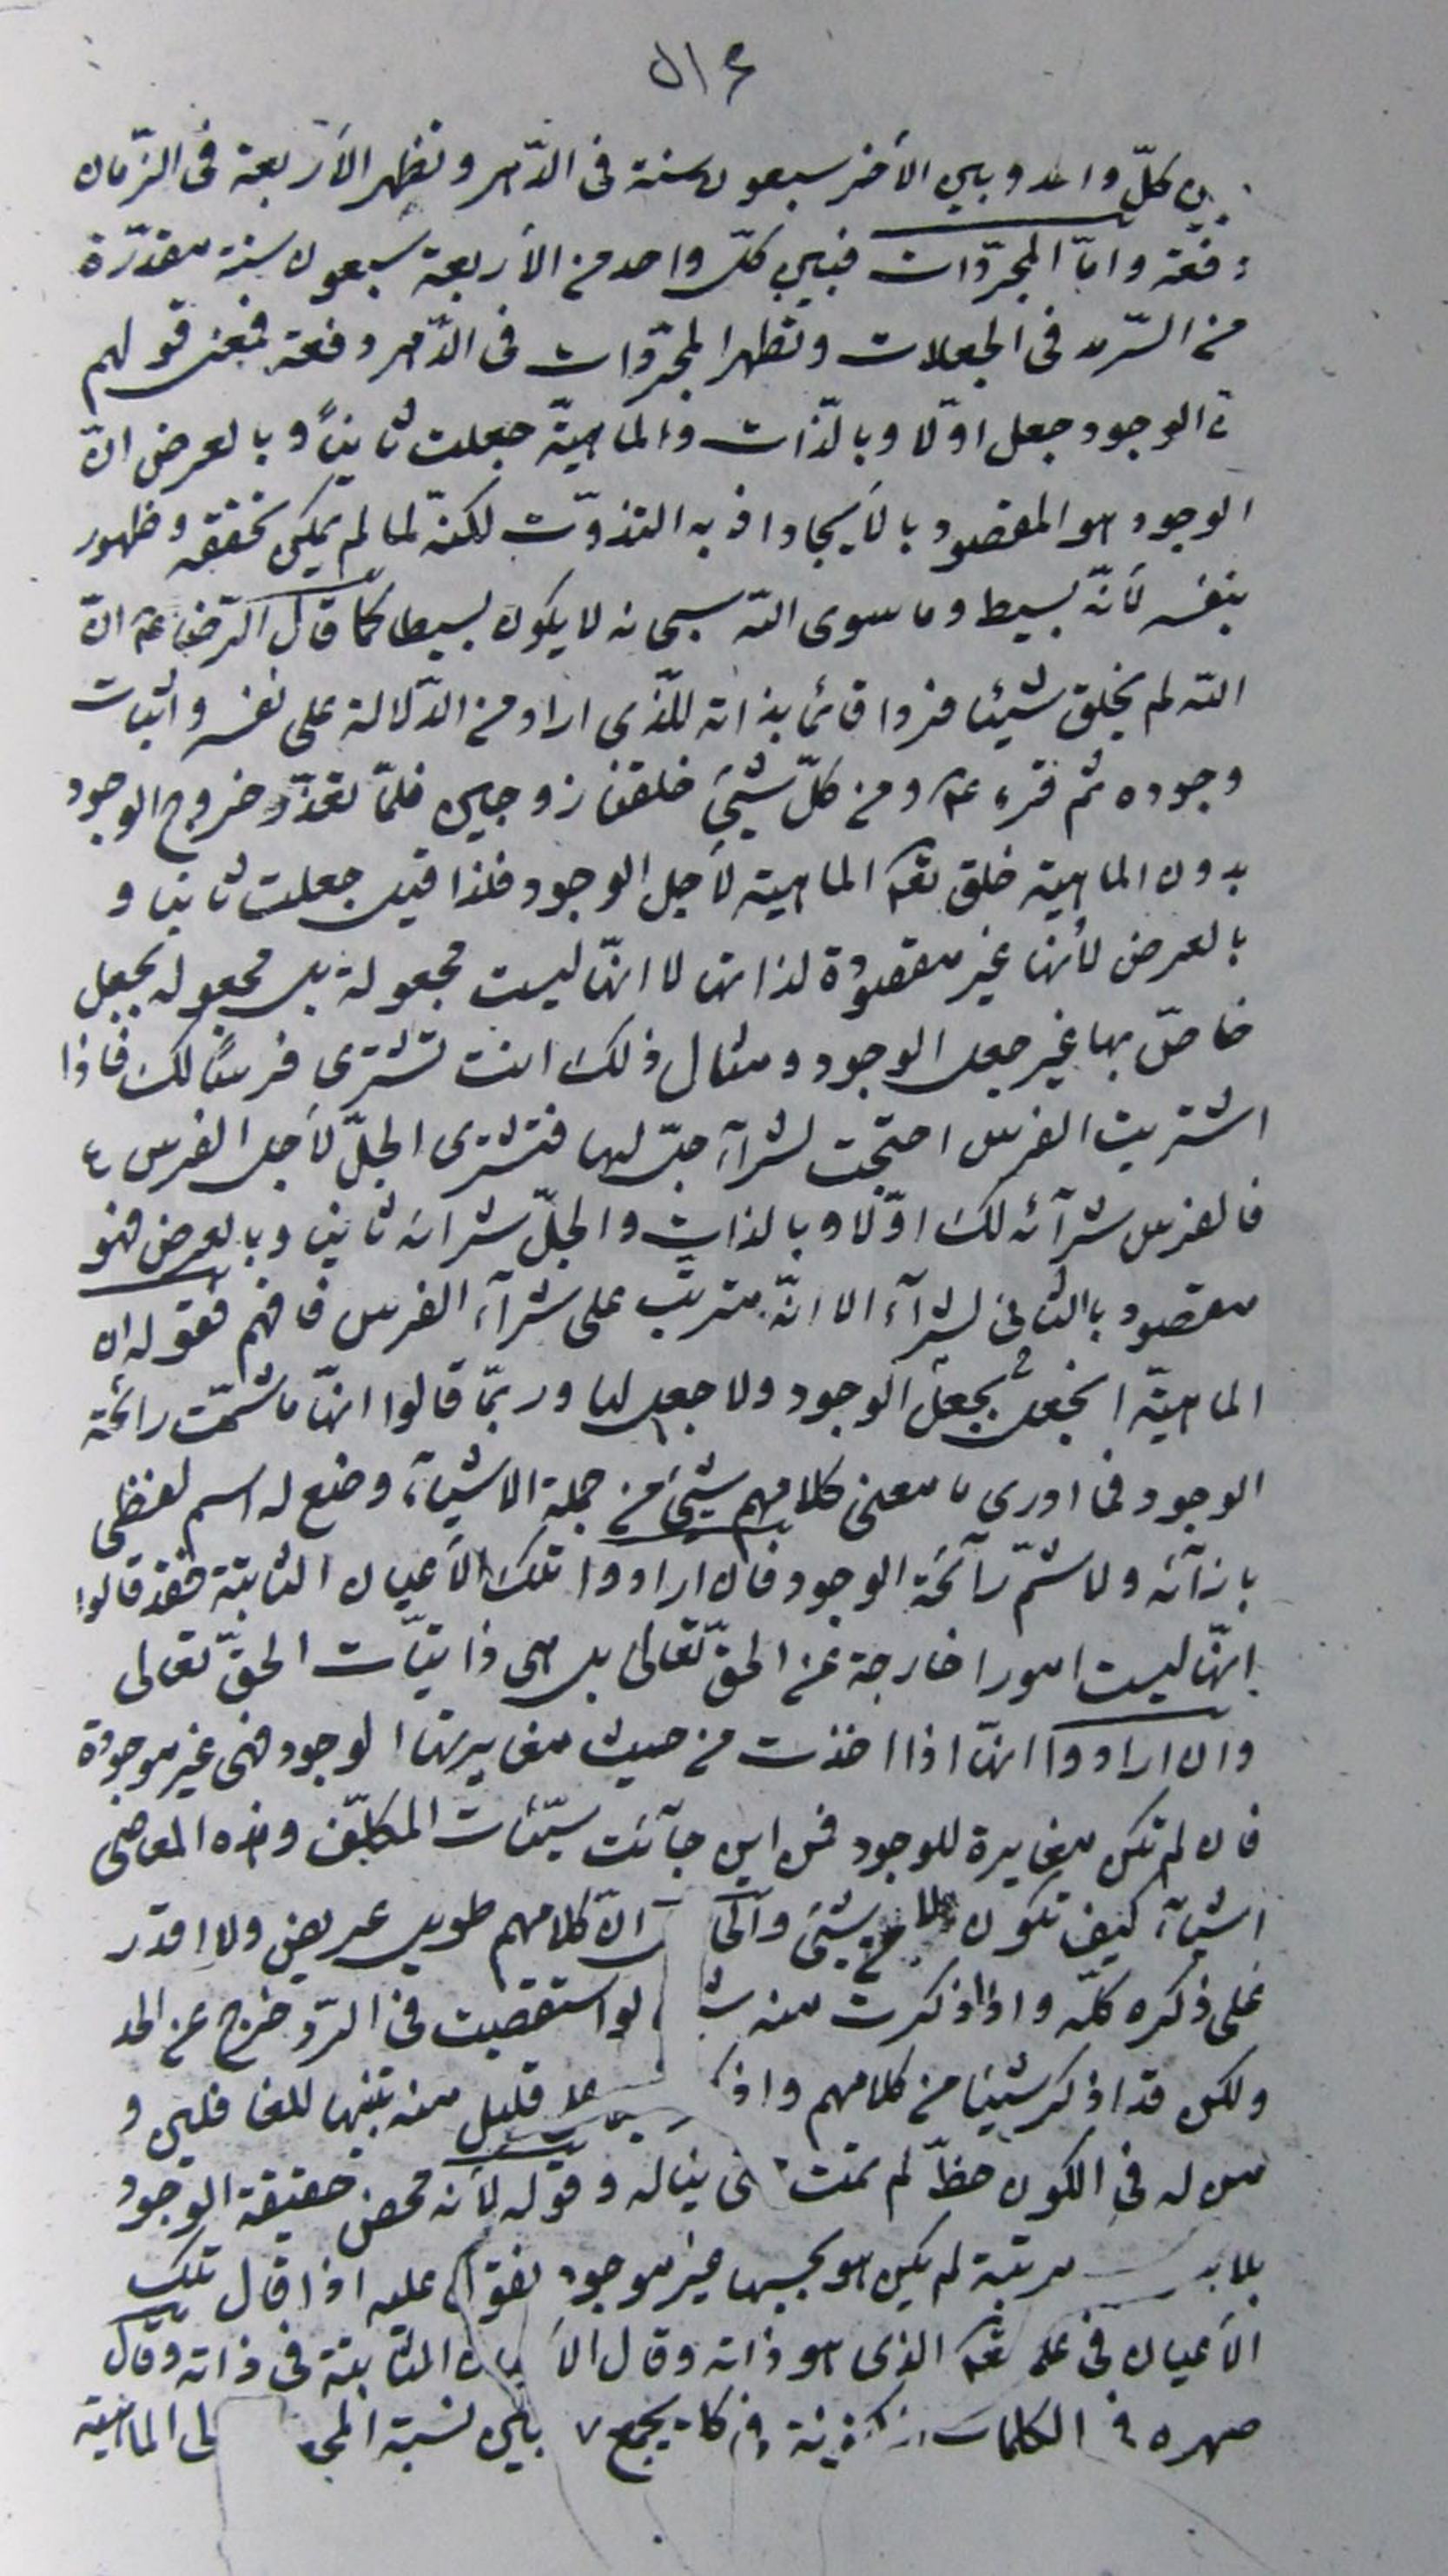 بين كلّ واحد وبين الأخر سبعون سنة فى الدّهر وتظهر الأربعة فى الزّمان
دفعة وامّا المجرّدات فبين كلّ واحد من الأربعة سبعون سنة مقدّرة
من السّرمد فى الجعلات وتظهر المجرّدات فى الدّهر دفعة فمعنى قولهم
انّ الوجود جعل اوّلا وبالذّات والماهيّة جعلت ثانياً وبالعرض انّ
الوجود هو المقصود بالأيجاد اذ به التذوّت لكنّه لما لم يمكن تحققه وظهور
بنفسه لأنّه بسيط وما سوى اللّه سبحانه لا يكون بسيطا كما قال الرّضا عم انّ
اللّه لم يخلق شيئا فردا قائما بذاته للّذى اراد من الدّلالة على نفسه واثبات
وجوده ثم قرء عم ومن كلّ شيئ خلقنا زوجين فلمّا تعذّر خروج الوجود
بدون الماهية خلق تعم الماهية لأجل الوجود فلذا قيل جعلت ثانيا و
بالعرض لأنها غير مقصودة لذاتها لا انّها ليست مجعولة بل مجعوله بجعل
خاصّ بها غير جعل الوجود ومثال ذلك انت تشترى فرساً لك فاذا
اشتريت الفرس احتجت لشرآء جلّ لها فتشترى الجلّ لأجل الفرس
فالفرس شرآئه لك اوّلا وبالذات والجلّ شرائه ثانيا وبالعرض فهو
مقصود بالثانى لشرآء الا انّه مترتب على شرآء الفرس فافهم فقوله ان
الماهيّة انجعلت بجعل الوجود ولا جعل لها وربّما قالوا انهّا ما شمّت رائحة
الوجود فما ادرى ما معنى كلامهم شيئ من جملة الاشيآء وضع له اسم لفظى
بازآئه ولا شمّ رآئحة الوجود فان ارادوا تلك الأعيان الثابتة فقد قالوا
انهّا ليست امورا خارجة عن الحقّ تعالى بل هى ذاتيّات الحقّ تعالى
وان ارادوا انها اذا اخذت من حيث مغايرتها الوجود فهى غير موجودة
فان لم تكن مغايرة للوجود فمن اين جآئت سيّئات المكلّف وهذه المعاصى
اشيآء كيف تكون شيئ انّ كلامهم طويل عريض ولا اقدر
على ذكره كلّه واذا ذكرت منه لو استقصيت فى الرّد خرج عن الحد
ولكن قد اذكر شيئا من كلامهم قليل منه تنبيها للغافلين و
من له فى الكون حظّ لم يمت حتى يناله وقوله لأنه محض حقيقة الوجود
بلا مرتبة لم يكن هو بحسبها غير موجود نقول عليه اذا قال تلك
الأعيان فى علمه تعم الذى هو ذاته وقال الأعيان الثابتة فى ذاته وقال
صهره فى الكلمات المكنونة بين نسبة الى الماهيّة